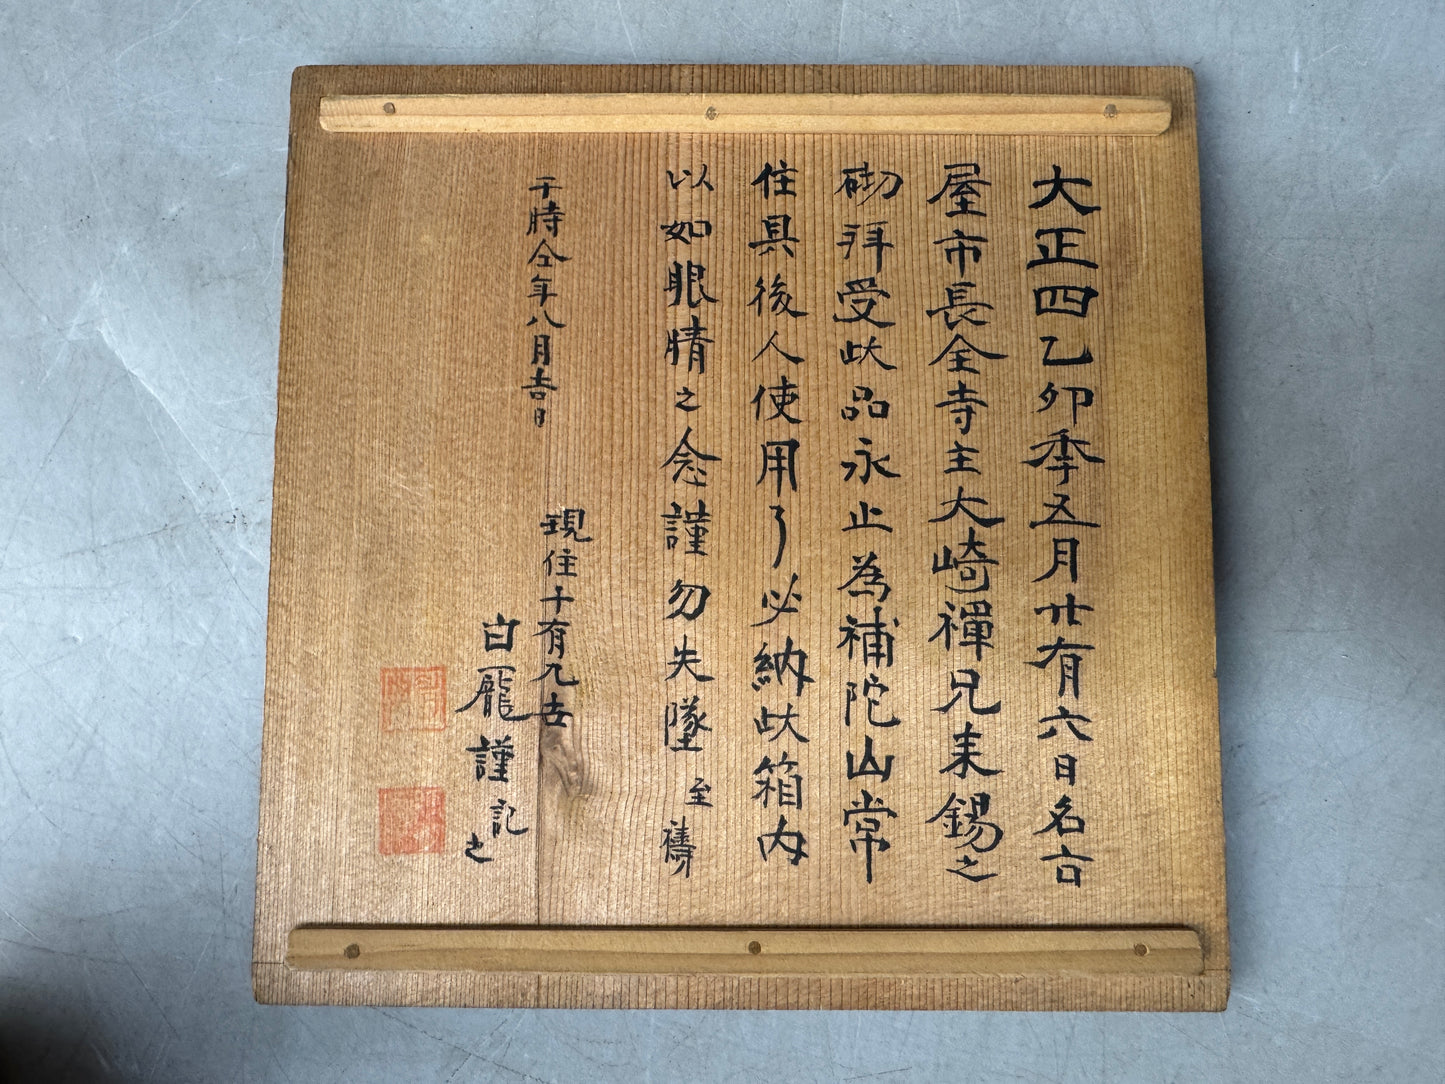 大正四乙卯季五月廿有六日名古
屋市長全寺主大崎禪兄来錫之
砌拜受此品永止為補陀山常
住具後人使用了必納此箱内
以如眼睛之念謹勿失墜至禱
于時仝年八月吉日
現住十有九古
白龐謹記之